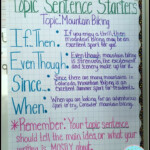 Topic Sentence Starters
Topic: Mountain Biking
If, Then... If you enjoy a thrill, then
mountain biking may be an
excellent sport for you.
Even Though... Even though mountain biking
is strenuous, the excitement
and scenery make up for it.
Since... Since there are many mountains in
Colorado, mountain biking is an
excellent Summer sport for
When... When you are looking for an adventurous
sport to try, consider mountain biking.
*Remember: Your topic sentence
should tell the main idea, or what your
writing is MOSTLY about.